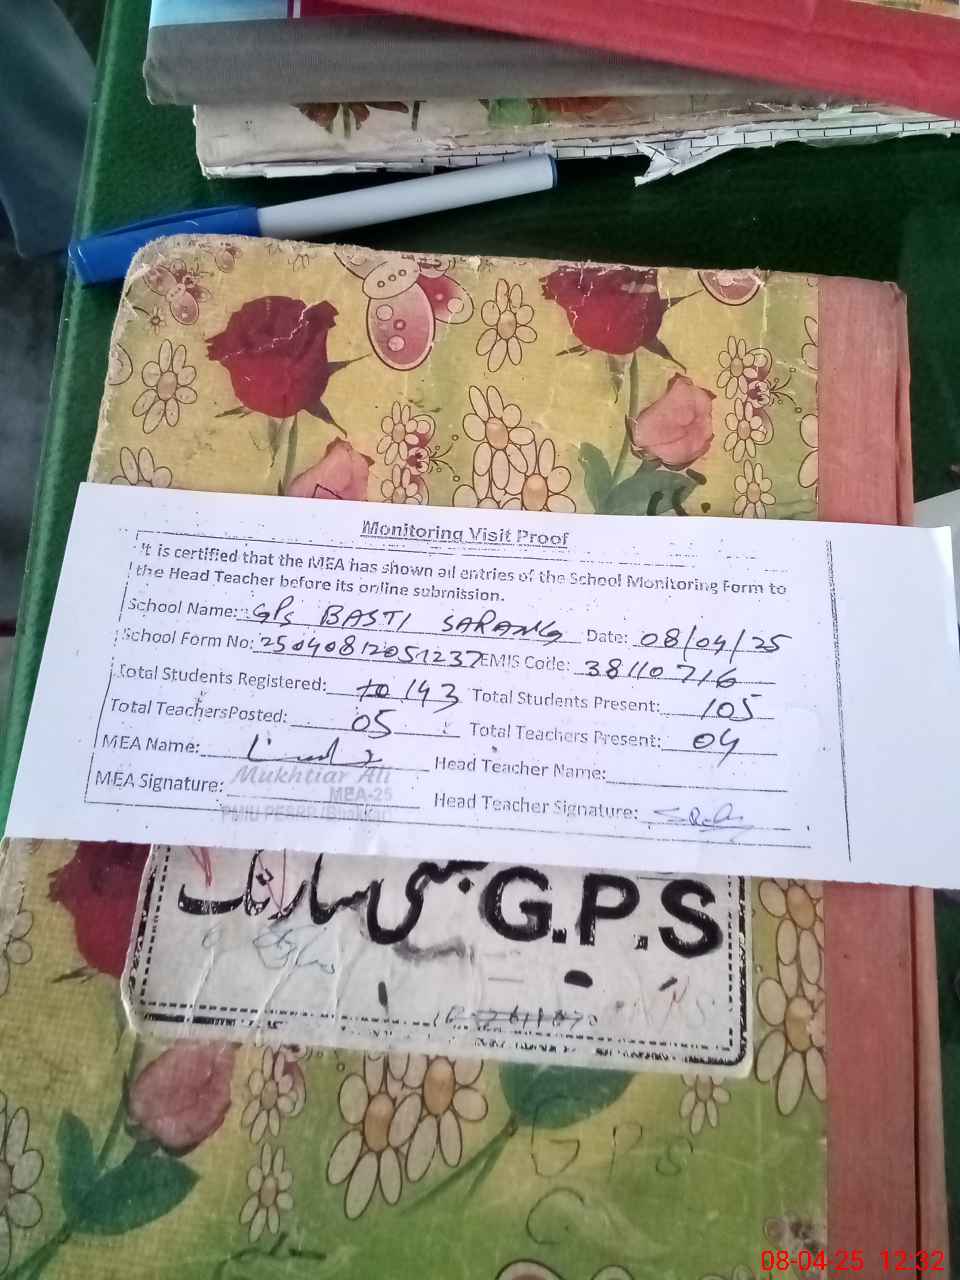 Monitoring Visit Proof
It is certified that the MEA has shown all entries of the School Monitoring Form to
the Head Teacher before its online submission.
School Name: GPS BASTI SARANG Date: 08/04/25
School Form No: 25040812051237 EMIS Code: 38110716
Total Students Registered: 143 Total Students Present: 105
Total TeachersPosted: 05 Total Teachers Present: 04
MEA Name: Head Teacher Name:
Mukhtiar Ali
MEA-25
MEA Signature: Head Teacher Signature:
PMIU PESRP/Bhakkar
بستی سارنگ G.P.S
G P S
08-04-25 12:32